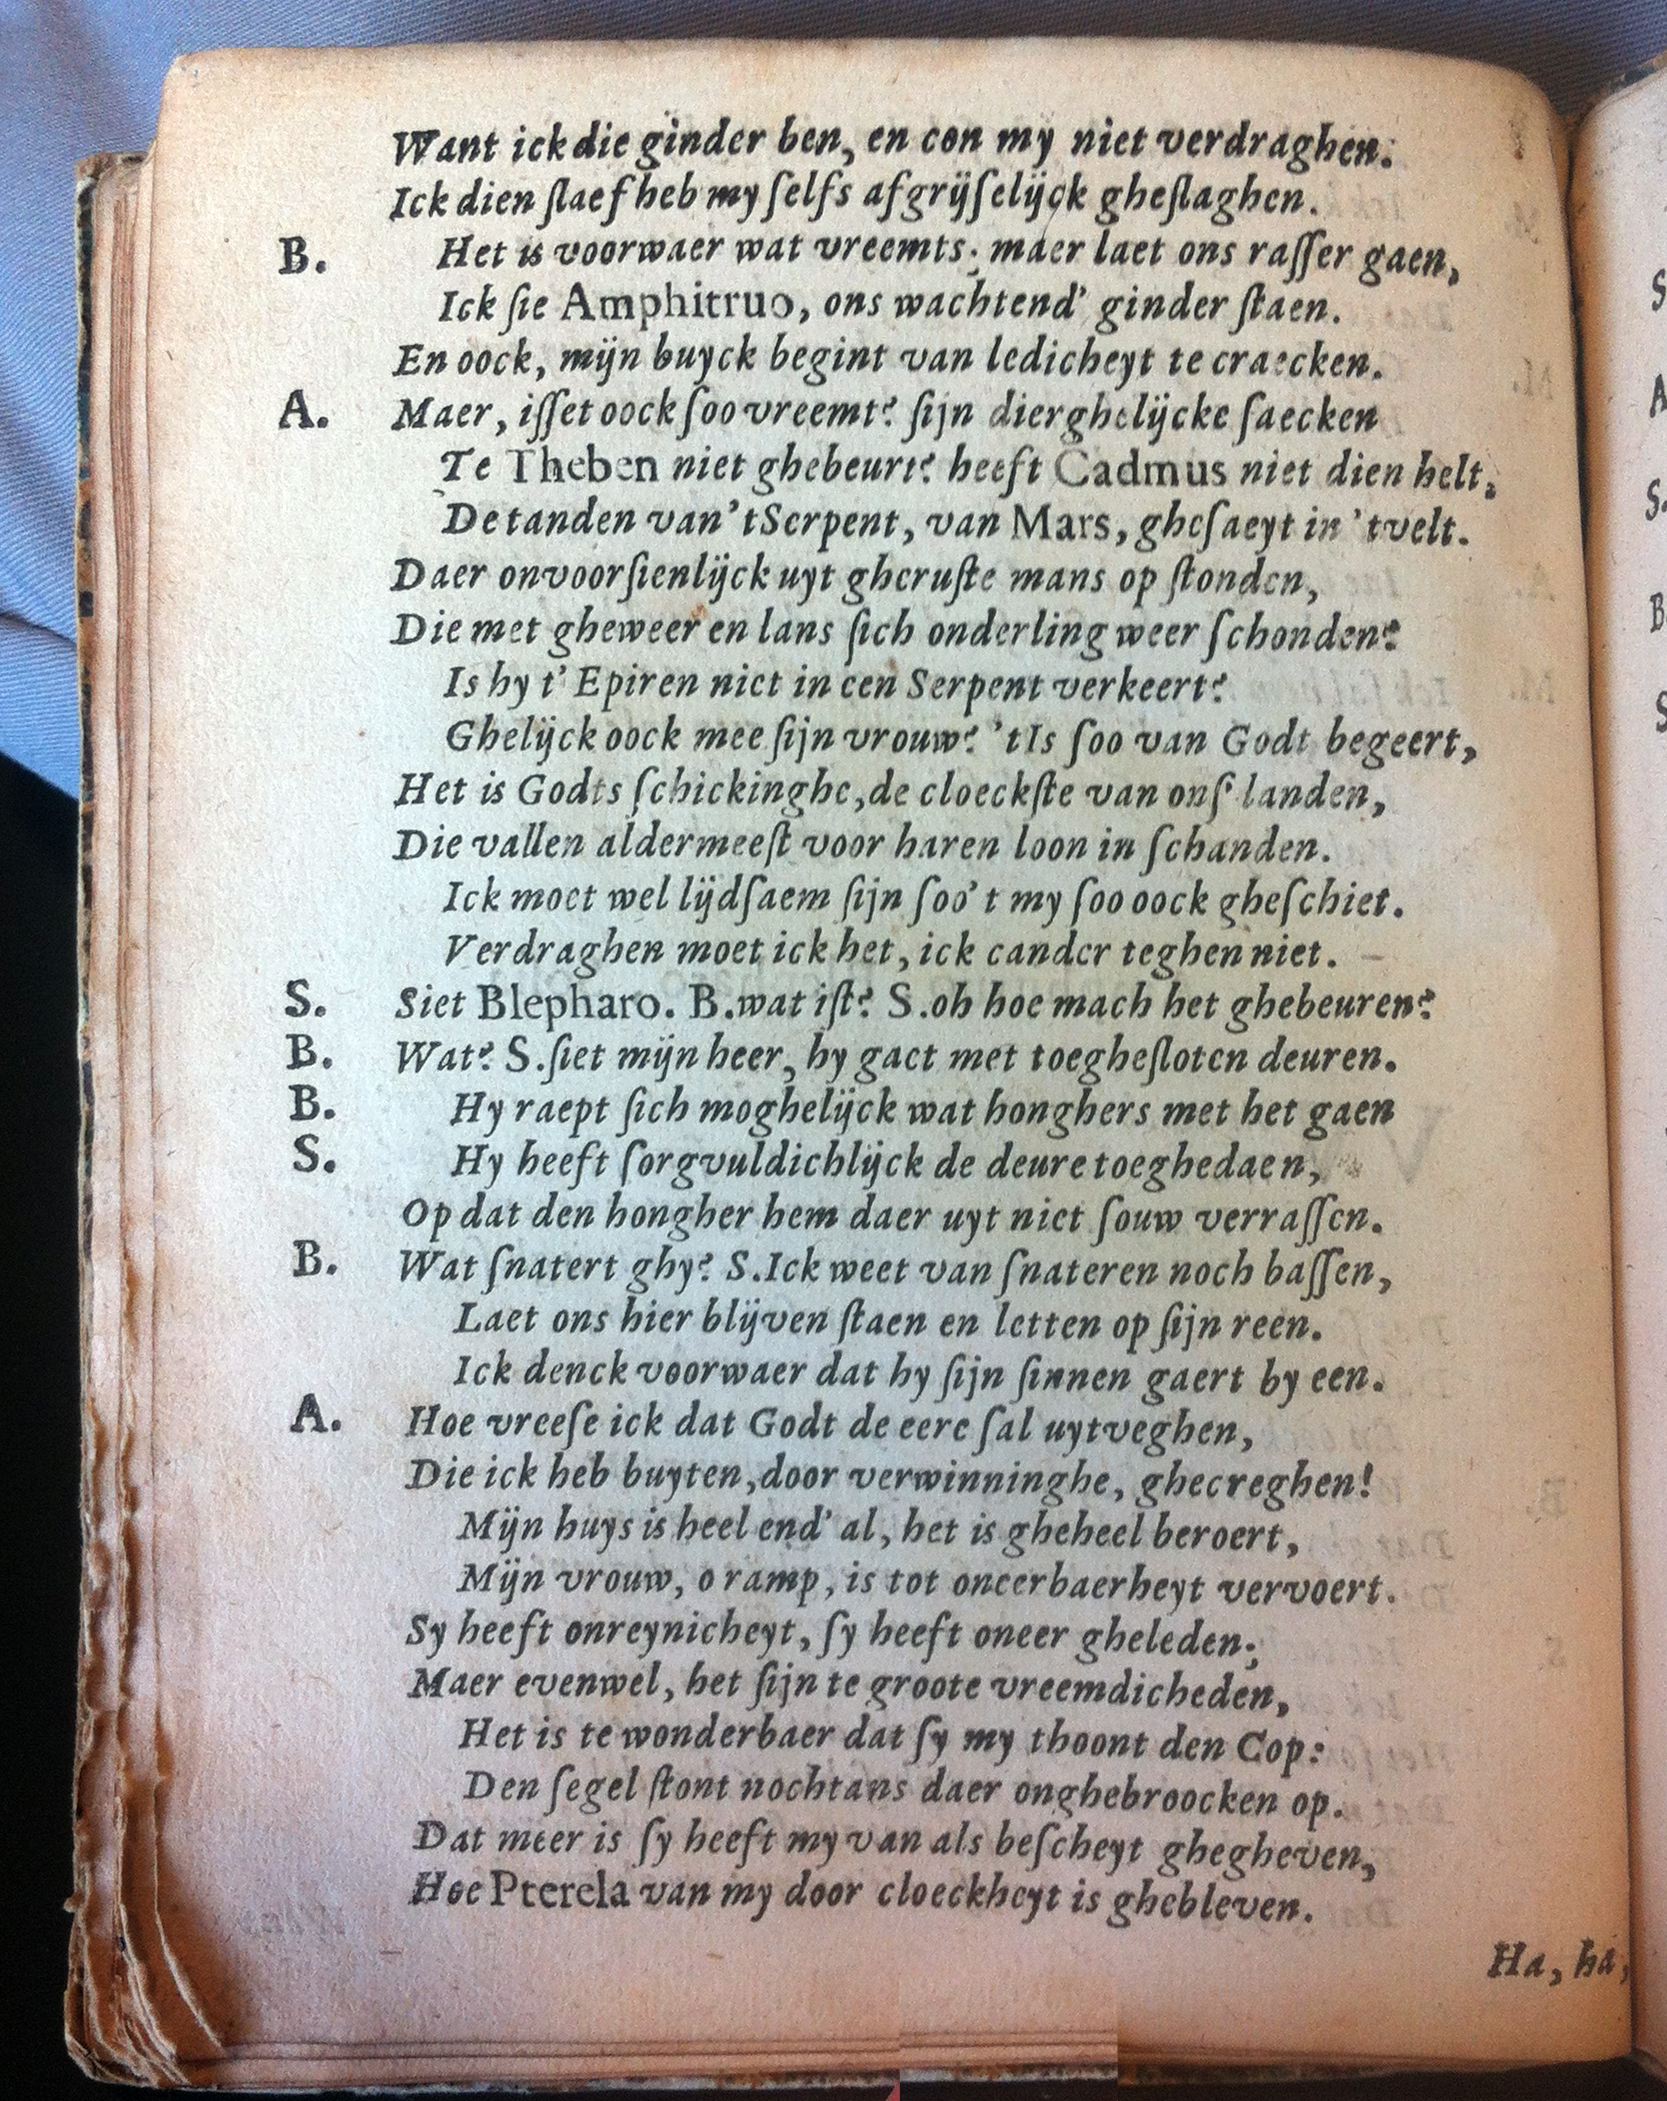 Want ick die ginder ben, en con my niet verdraghen.
Ick dien ſlaef heb my ſelfs afgrijſelijck gheſlaghen.
B. Het is voorwaer wat vreemts; maer laet ons raſſer gaen,
Ick ſie Amphitruo, ons wachtend' ginder ſtaen.
En oock, mijn buyck begint van ledicheyt te craecken.
A. Maer, iſſet oock ſoo vreemt? ſijn dierghelijcke ſaecken
Te Theben niet ghebeurt? heeft Cadmus niet dien helt,
De tanden van 't Serpent, van Mars, gheſaeyt in 't velt.
Daer onvoorſienlijck uyt gheruſte mans op ſtonden,
Die met gheweer en lans ſich onderling weer ſchonden?
Is hy t' Epiren niet in een Serpent verkeert?
Ghelijck oock mee ſijn vrouw? 't Is ſoo van Godt begeert,
Het is Godts ſchickinghe, de cloeckſte van onſ' landen,
Die vallen aldermeeſt voor haren loon in ſchanden.
Ick moet wel lijdſaem ſijn ſoo' t my ſoo oock gheſchiet.
Verdraghen moet ick het, ick cander teghen niet.
S. Siet Blepharo. B. wat iſt? S. oh hoe mach het ghebeuren?
B. Wat? S. ſiet mijn heer, hy gaet met toegheſloten deuren.
B. Hy raept ſich moghelijck wat honghers met het gaen
S. Hy heeft ſorgvuldichlijck de deure toeghedaen,
Op dat den hongher hem daer uyt niet ſouw verraſſen.
B. Wat ſnatert ghy? S. Ick weet van ſnateren noch baſſen,
Laet ons hier blijven ſtaen en letten op ſijn reen.
Ick denck voorwaer dat hy ſijn ſinnen gaert by een.
A. Hoe vreeſe ick dat Godt de eere ſal uytveghen,
Die ick heb buyten, door verwinninghe, ghecreghen!
Mijn huys is heel end' al, het is gheheel beroert,
Mijn vrouw, o ramp, is tot oneerbaerheyt vervoert.
Sy heeft onreynicheyt, ſy heeft oneer gheleden;
Maer evenwel, het ſijn te groote vreemdicheden,
Het is te wonderbaer dat ſy my thoont den Cop:
Den ſegel ſtont nochtans daer onghebroocken op.
Dat meer is ſy heeft my van als beſcheyt ghegheven,
Hoe Pterela van my door cloeckheyt is ghebleven.
Ha, ha,